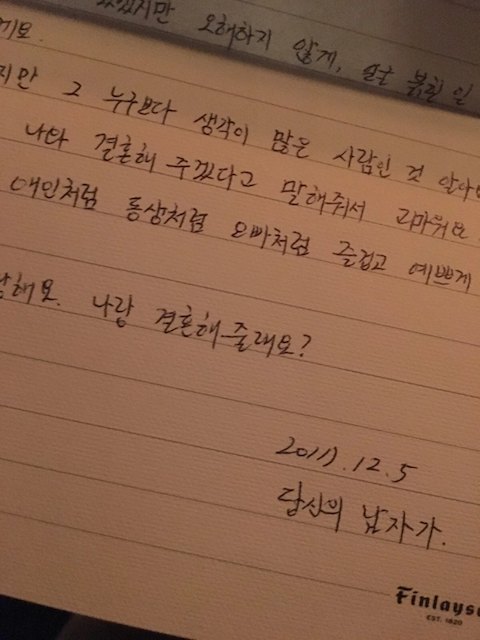 오해하지 않게, 얼굴 붉힐 일
게요.
지만 그 누구보다 생각이 많은 사람인 것 알아
나와 결혼해 주겠다고 말해줘서 고마워요
애인처럼 동생처럼 오빠처럼 즐겁고 예쁘게
해요. 나랑 결혼해줄래요?
2017.12.5
당신의 남자가.
Finlays
EST. 1820